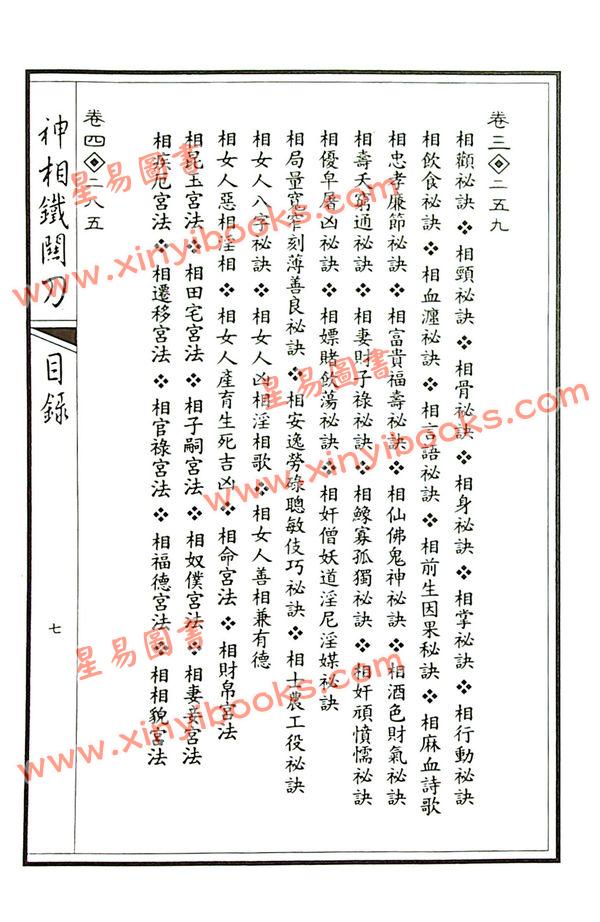 卷三◈二五九
相顴祕訣❖相頸祕訣❖相骨祕訣❖相身祕訣❖相掌祕訣❖相行動祕訣
相飲食祕訣❖相血祕訣❖相言語祕訣❖相前生因果秘訣❖相麻血詩歌
相忠孝廉節祕訣❖相富貴福壽祕訣❖相仙佛鬼神祕訣❖相酒色財氣祕訣
相壽夭窮通祕訣❖相妻財子祿祕訣❖相鰥寡孤獨祕訣❖相奸頑憤懦祕訣
相優卑屠凶祕訣❖相嫖賭飲蕩祕訣❖相奸僧妖道淫尼淫媒祕訣
相局量寬窄刻薄善良祕訣❖相安逸勞碌聰敏伎巧祕訣❖相士農工役祕訣
相女人八字祕訣❖相女人凶相淫相歌❖相女人善相兼有德
相女人惡相淫相❖相女人產育生死吉凶❖相命宮法❖相財帛宮法
相昆玉宮法❖相田宅宮法❖相子嗣宮法❖相奴僕宮法❖相妻妾宮法
相疾厄宮法❖相遷移宮法❖相官祿宮法❖相福德宮法❖相相貌宮法
卷四◈二八五
神相鐵關刀
目錄
七
星易圖書
www.xinyibooks.com
星易圖書
www.xinyibooks.com
星易圖書
www.xinyibooks.com